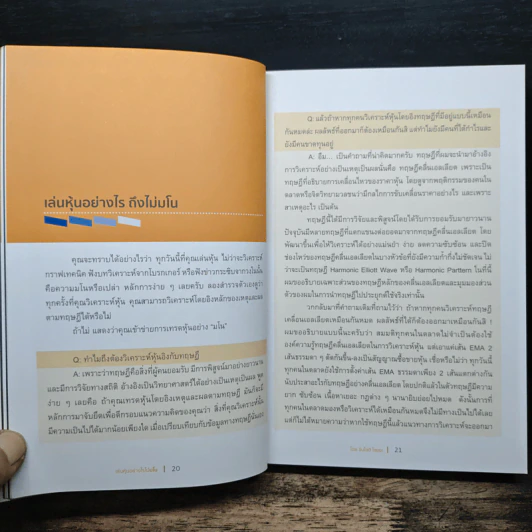 เล่นหุ้นอย่างไร ถึงไม่มโน
คุณจะทราบได้อย่างไรว่า ทุกวันนี้ที่คุณเล่นหุ้น ไม่ว่าจะวิเคราะห์
กราฟเทคนิค ฟังบทวิเคราะห์จากโบรกเกอร์ หรือฟังข่าวกระซิบจากวงในนั้น
คือความมโนหรือเปล่า หลักการง่าย ๆ เลยครับ ลองสำรวจตัวเองดูว่า
ทุกครั้งที่คุณวิเคราะห์หุ้น คุณสามารถวิเคราะห์โดยอิงหลักของเหตุและผล
ตามทฤษฎีได้หรือไม่
ถ้าไม่ แสดงว่าคุณเข้าข่ายการเทรดหุ้นอย่าง "มโน"
Q: ทำไมถึงต้องวิเคราะห์หุ้นอิงกับทฤษฎี
A: เพราะว่าทฤษฎีคือสิ่งที่ผู้คนยอมรับ มีการพิสูจน์มาอย่างยาวนาน
และมีการวิจัยทางสถิติ อ้างอิงเป็นวิทยาศาสตร์ได้อย่างเป็นเหตุเป็นผล พูด
ง่าย ๆ เลยคือ ถ้าคุณเทรดหุ้นโดยอิงเหตุและผลตามทฤษฎี มันก็จะมี
หลักการมาจับยึดเพื่อตีกรอบแนวความคิดของคุณว่า สิ่งที่คุณวิเคราะห์นั้น
มีความเป็นไปได้มากน้อยเพียงใด เมื่อเปรียบเทียบกับข้อมูลทางทฤษฎีนั่นเอง
20
Q: แล้วถ้าหากทุกคนวิเคราะห์หุ้นโดยอิงทฤษฎีที่มีอยู่แบบนี้เหมือน
กันหมดล่ะ ผลลัพธ์ที่ออกมาก็ต้องเหมือนกันสิ แต่ทำไมยังมีคนที่ได้กำไรและ
ยังมีคนขาดทุนอยู่
A: อืม... เป็นคำถามที่น่าคิดมากครับ ทฤษฎีที่ผมจะนำมาอ้างอิง
การวิเคราะห์อย่างเป็นเหตุเป็นผลนั่นคือ ทฤษฎีคลื่นเอลเลียต เพราะเป็น
ทฤษฎีที่อธิบายการเคลื่อนไหวของราคาหุ้น โดยดูจากพฤติกรรมของคนใน
ตลาดหรือจิตวิทยามวลชนว่ามีกลไกการขับเคลื่อนราคาอย่างไร และเพราะ
สาเหตุอะไร เป็นต้น
ทฤษฎีนี้ได้มีการวิจัยและพิสูจน์โดยได้รับการยอมรับมายาวนาน
ปัจจุบันมีหลายทฤษฎีที่แตกแขนงต่อยอดมาจากทฤษฎีคลื่นเอลเลียต โดย
พัฒนาขึ้นเพื่อให้วิเคราะห์ได้อย่างแม่นยำ ง่าย ลดความซับซ้อน และปิด
ช่องโหว่ของทฤษฎีคลื่นเอลเลียตในบางหัวข้อที่ยังมีความกำกึ่งไม่ชัดเจน ไม่
ว่าจะเป็นทฤษฎี Harmonic Elliott Wave หรือ Harmonic Parttern ในที่นี้
ผมขออธิบายเฉพาะส่วนของทฤษฎีหลักของคลื่นเอลเลียตและมุมมองส่วน
ตัวของผมในการนำทฤษฎีไปประยุกต์ใช้จริงเท่านั้น
วกกลับมาที่คำถามเดิมที่ถามไว้ว่า ถ้าหากทุกคนวิเคราะห์ทฤษฎี
คลื่นเอลเลียตเหมือนกันหมด ผลลัพธ์ที่ได้ก็ต้องออกมาเหมือนกันสิ !
ผมขออธิบายแบบนี้นะครับว่า สมมติทุกคนในตลาดไม่จำเป็นต้องใช้
องค์ความรู้ทฤษฎีคลื่นเอลเลียตในการวิเคราะห์หุ้น แต่เอาแค่เส้น EMA 2
เส้นธรรมดา ๆ ตัดกันขึ้น-ลงเป็นสัญญาณซื้อขายหุ้น เชื่อหรือไม่ว่า ทุกวันนี้
ทุกคนในตลาดยังใช้การตั้งค่าเส้น EMA ธรรมดาเพียง 2 เส้นแตกต่างกัน
นับประสาอะไรกับทฤษฎีอย่างคลื่นเอลเลียต โดยปกติแล้วในตัวทฤษฎีมีความ
ยาก ซับซ้อน เนื้อหาเยอะ กฎต่าง ๆ นานายิบย่อยไปหมด ดังนั้นการที่
ทุกคนในตลาดมองหรือวิเคราะห์ได้เหมือนกันหมดจึงไม่มีทางเป็นไปได้เลย
แต่ก็ไม่ได้หมายความว่าหากใช้ทฤษฎีนี้แล้วแนวทางการวิเคราะห์จะออกมา
21